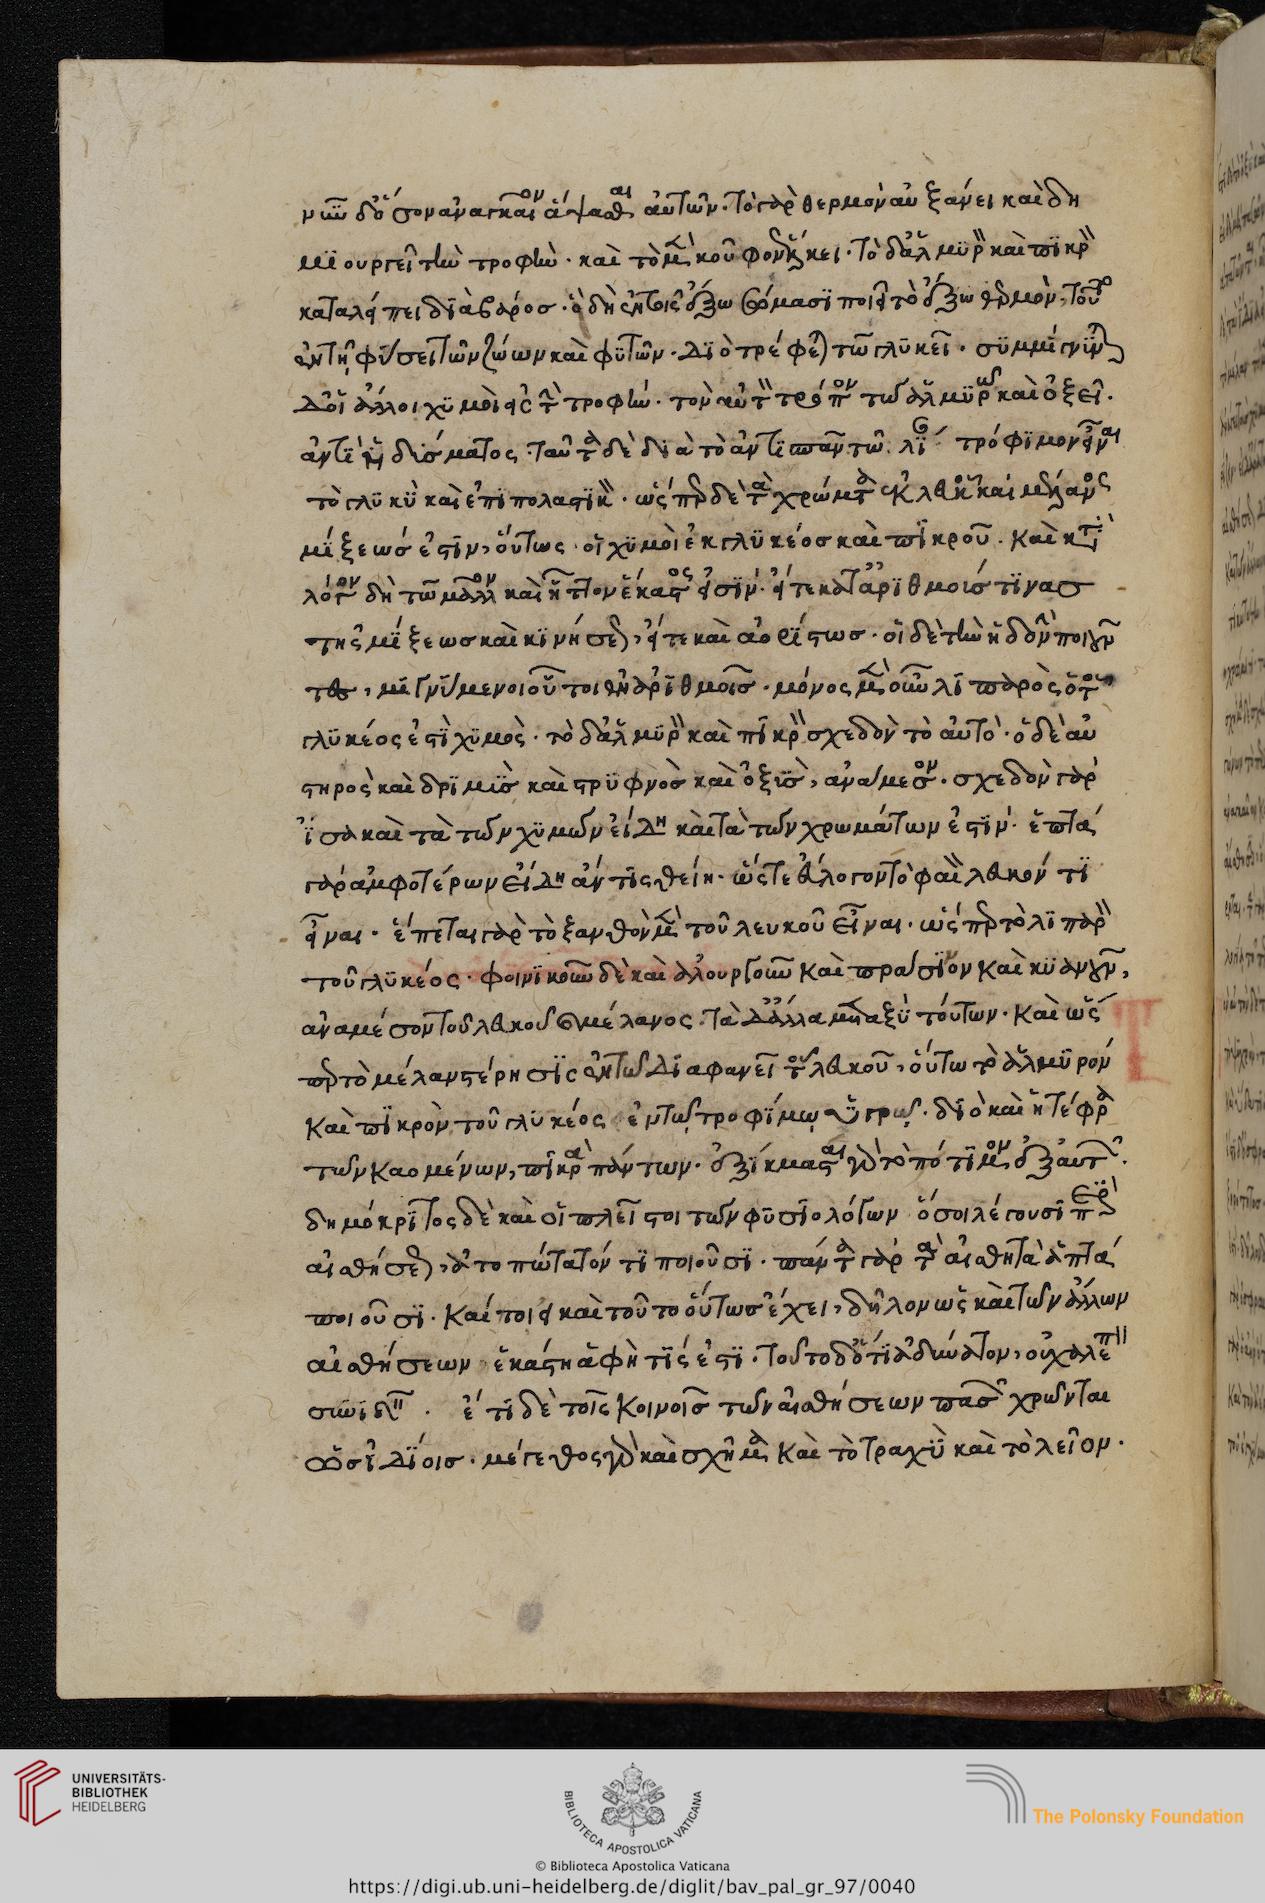 νῦν δ' ὅσον ἀναγκαῖον ἅψασθαι αὐτῶν. τὸ γὰρ θερμὸν αὐξάνει καὶ δη
μιουργεῖ τὴν τροφήν. καὶ τὸ μὲν κοῦφον ἕλκει. τὸ δ' ἁλμυρὸν καὶ πικρὸν
καταλείπει διὰ βάρος. ὃ δὴ ἐν τοῖς ἔξω σώμασι ποιεῖ τὸ ἔξω θερμὸν, τοῦτο
ἐν τῇ φύσει τῶν ζώων καὶ φυτῶν. διὸ τρέφεται τῷ γλυκεῖ. συμμίγνυνται
δ' οἱ ἄλλοι χυμοὶ εἰς τὴν τροφήν. τὸν αὐτὸν τρόπον τῷ ἁλμυρῷ καὶ ὀξεῖ.
ἀντὶ ἡδύσματος. ταῦτα δὲ διὰ τὸ ἀντισπᾶν τῷ λίαν τρόφιμον εἶναι
τὸ γλυκὺ καὶ ἐπιπολαστικὸν. ὥσπερ δὲ τὰ χρώματα ἐκ λευκοῦ καὶ μέλανος
μίξεώς ἐστιν, οὕτως οἱ χυμοὶ ἐκ γλυκέος καὶ πικροῦ. καὶ κατὰ
λόγον δὴ τῷ μᾶλλον καὶ ἧττον ἕκαστος εἰσίν. εἴτε κατ' ἀριθμούς τινας
τῆς μίξεως καὶ κινήσεως, εἴτε καὶ ἀορίστως. οἱ δὲ τὴν ἡδονὴν ποιοῦν
τες, μιγνύμενοι οὗτοι ἐν ἀριθμοῖς. μόνος μὲν οὖν λιπαρὸς ὁ τοῦ
γλυκέος ἐστὶ χυμὸς. τὸ δ' ἁλμυρὸν καὶ πικρὸν σχεδὸν τὸ αὐτὸ. ὁ δὲ αὐ
στηρὸς καὶ δριμὺς καὶ στρυφνὸς καὶ ὀξὺς, ἀνάμεσον. σχεδὸν γὰρ
ἴσα καὶ τὰ τῶν χυμῶν εἴδη καὶ τὰ τῶν χρωμάτων ἐστίν. ἑπτὰ
γὰρ ἀμφοτέρων εἴδη ἄν τις θείη. ὥστε εὔλογον τὸ φαιὸν λευκόν τι
εἶναι. ἕπεται γὰρ τὸ ξανθὸν μὲν τοῦ λευκοῦ εἶναι. ὥσπερ τὸ λιπαρὸν
τοῦ γλυκέος. φοινικοῦν δὲ καὶ ἁλουργοῦν καὶ πράσιον καὶ κυανοῦν,
ἀναμέσον τοῦ λευκοῦ καὶ μέλανος. τὰ δ' ἄλλα μεταξὺ τούτων. καὶ ὥσ
περ τὸ μέλαν στέρησις ἐν τῷ διαφανεῖ τοῦ λευκοῦ, οὕτω τὸ ἁλμυρὸν
καὶ πικρὸν τοῦ γλυκέος ἐν τῷ τροφίμῳ ὑγρῷ. διὸ καὶ ἡ τέφρα
τῶν καομένων, πικρὰ πάντων. ἐξίκμασται γὰρ τὸ πότιμον ἐξ αὐτῆς.
δημόκριτος δὲ καὶ οἱ πλεῖστοι τῶν φυσιολόγων ὅσοι λέγουσι περὶ
αἰσθήσεως, ἀτοπώτατόν τι ποιοῦσι. πάντα γὰρ τὰ αἰσθητὰ ἁπτὰ
ποιοῦσι. καίτοι εἰ καὶ τοῦτο οὕτως ἔχει, δῆλον ὡς καὶ τῶν ἄλλων
αἰσθήσεων ἑκάστη ἁφή τίς ἐστι. τοῦτο δ' ὅτι ἀδύνατον, οὐ χαλεπὸν
συνιδεῖν. ἔτι δὲ τοῖς κοινοῖς τῶν αἰσθήσεων πασῶν χρῶνται
ὡς ἰδίοις. μέγεθος γὰρ καὶ σχῆμα καὶ τὸ τραχὺ καὶ τὸ λεῖον.
UNIVERSITÄTS-
BIBLIOTHEK
HEIDELBERG
BIBLIOTECA APOSTOLICA VATICANA
The Polonsky Foundation
© Biblioteca Apostolica Vaticana
https://digi.ub.uni-heidelberg.de/diglit/bav_pal_gr_97/0040